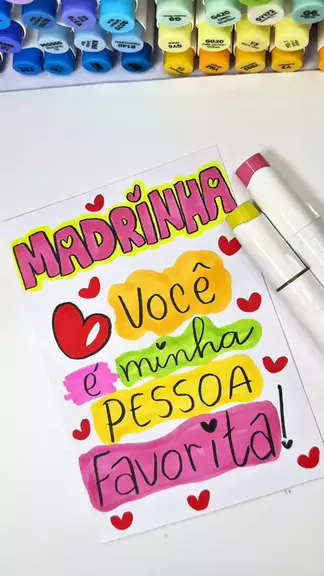 MADRINHA
Você
é minha
PESSOA
Favorita!